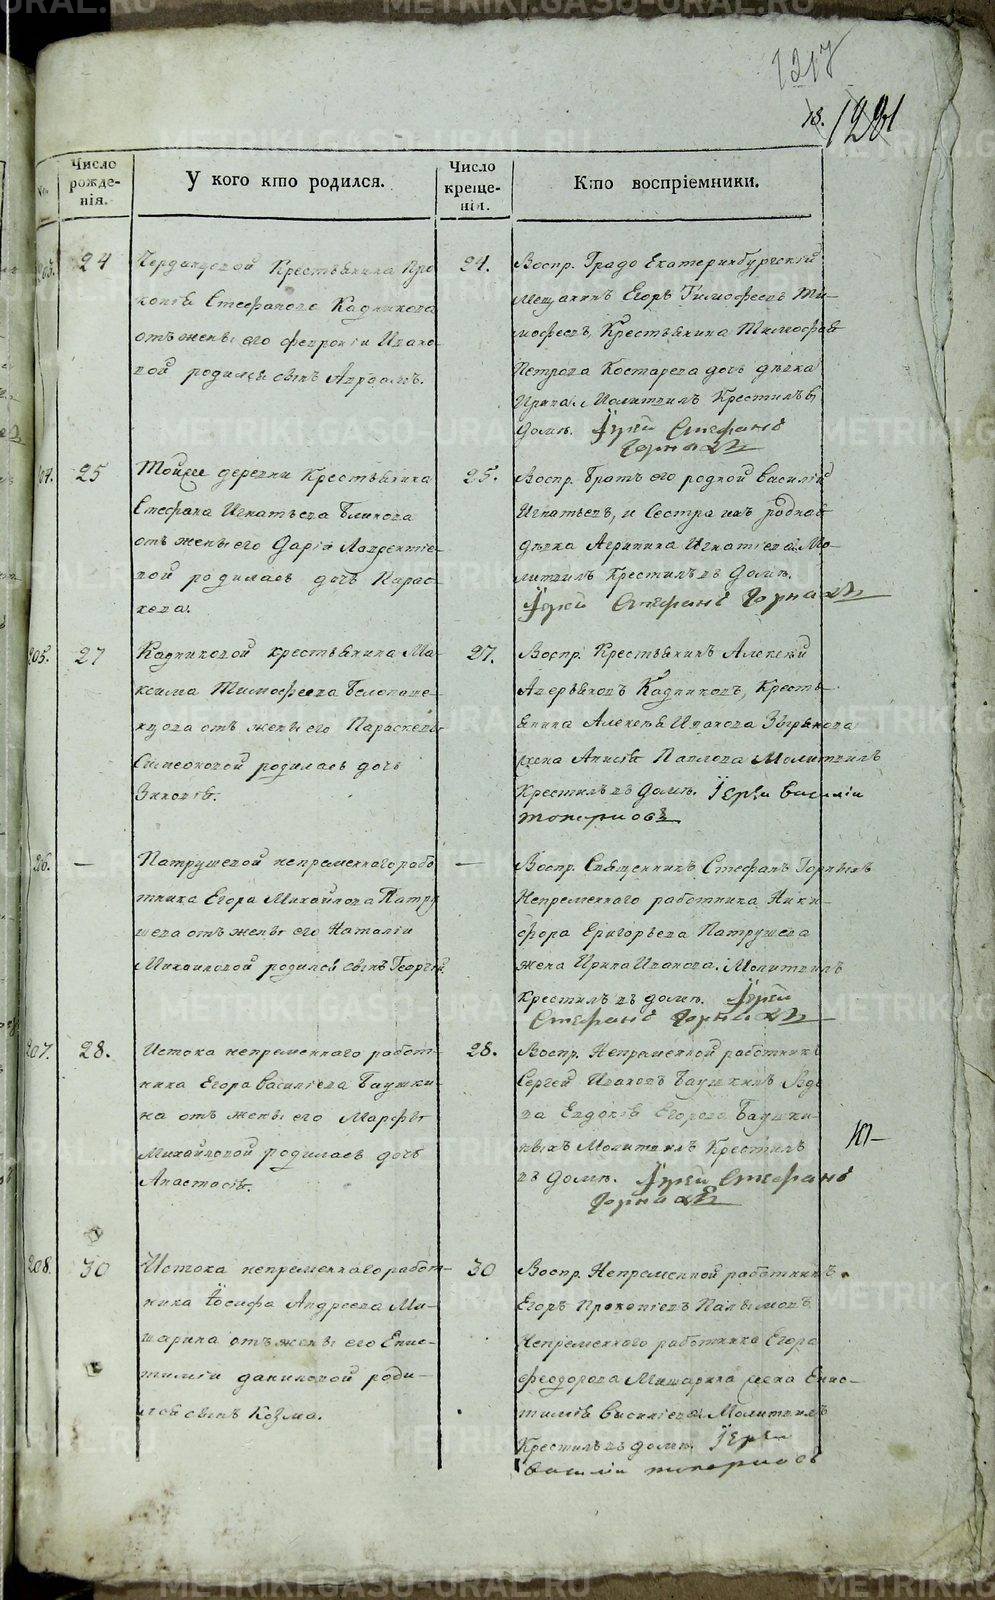 1217
18. 1221
Число рожде-нія.
У кого кто родился.
Число креще-нія.
Кто воспріемники.
24
Черданцовой Крестьянина Про
копія Стефанова Кадникова
отъ жены его Февроніи Ивано
вой родился сынъ Авраамъ.
24.
Воспр. Градо Екатеринбургскій
Мещанинъ Егоръ Тимофеевъ Ти-
мофеевъ, Крестьянина Тимофея
Петрова Костарева дочь дѣвка
Ирина. Молитвилъ Крестилъ въ
домѣ. Іерей Стефанъ
25
Тойже деревни Крестьянина
Стефана Игнатьева Блинова
отъ жены его Даріи Лаврентіе-
вой родилась дочь Парас-
кева.
25.
Воспр. Братъ его родной Василій
Игнатьевъ, и Сестра ихъ родная
дѣвка Агрипина Игнатіева. Мо-
литвилъ Крестилъ въ домѣ.
Іерей Стефанъ
205.
27
Кадниковой крестьянина Ма-
ксима Тимофеева Белопаше-
нцова отъ жены его Параскевы
Симеоновой родилась дочь
Зиновія.
27.
Воспр. Крестьянинъ Алексѣй
Аверьяновъ Кадниковъ, Кресть-
янина Алексѣя Иванова Зырянова
жена Анисія Павлова Молитвилъ
Крестилъ въ домѣ. Іерей Василій
Топорковъ
26.
—
Патрушевой непременнаго рабо
тника Егора Михайлова Патру
шева отъ жены его Наталіи
Михайловой родился сынъ Георгій
—
Воспр. Священникъ Стефанъ Горныхъ
Непременнаго работника Ники-
фора Григорьева Патрушева
жена Ирина Иванова. Молитвилъ
крестилъ въ домѣ. Іерей
Стефанъ
207.
28.
Истока непременнаго работ-
ника Егора Васильева Баушки-
на отъ жены его Марфы
Михайловой родилась дочь
Анастасія.
28.
Воспр. Непременной работникъ
Сергей Ивановъ Баушкинъ Вдо
ва Евдокія Егорова Баушки-
ныхъ Молитвилъ Крестилъ
въ домѣ. Іерей Стефанъ
208.
30
Истока непременнаго работ-
ника Іосифа Андреева Ми-
шарина отъ жены его Епис-
тиміи Даниловой роди-
лся сынъ Козма.
30
Воспр. Непременной работникъ
Егоръ Прокопіевъ
Непременнаго работника Егора
Феодорова Мишарина жена Епис-
тимія Василіева. Молитвилъ
Крестилъ въ домѣ. Іерей
Василій Топорковъ
METRIKI.GASO-URAL.RU